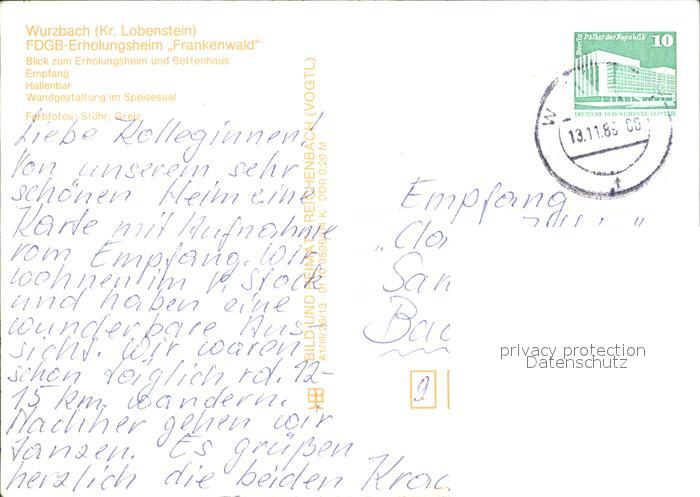 Wurzbach (Kr. Lobenstein)
FDGB-Erholungsheim „Frankenwald“
Blick zum Erholungsheim und Bettenhaus
Empfang
Hallenbar
Wandgestaltung im Speisesaal
Farbfotos: Stöhr, Greiz
Liebe Kolleginnen!
Von unserem sehr
schönen Heim eine
Karte mit Aufnahme
vom Empfang. Wir
wohnen im V. Stock
und haben eine
wunderbare Aus-
sicht. Wir waren
schon täglich rd. 12-
15 km wandern.
Nachher gehen wir
tanzen. Es grüßen
herzlich die beiden
BILD UND HEIMAT REICHENBACH (VOGTL)
A1/III/26/13 K DDR 0,20 M
Berlin Palast der Republik
10
DEUTSCHE DEMOKRATISCHE REPUBLIK
13.11.
Empfang
9
privacy protection
Datenschutz